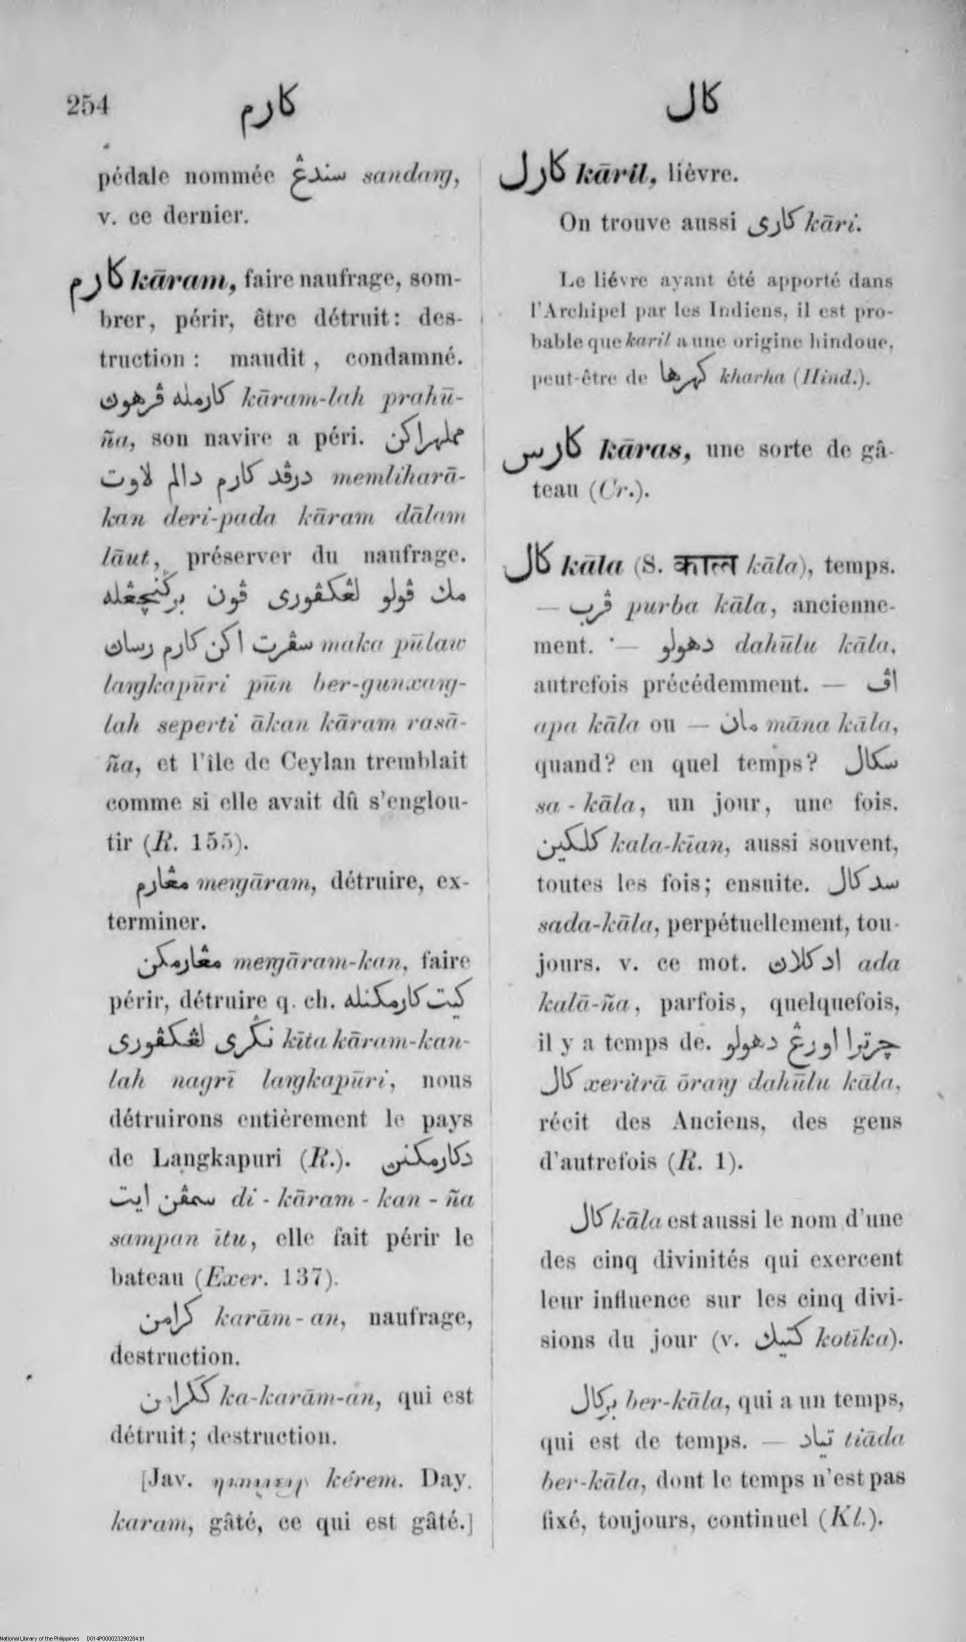 254
كارم
كال
pédale nommée سندڠ sandaŋ,
v. ce dernier.
كارم kāram, faire naufrage, som-
brer, périr, être détruit: des-
truction: maudit, condamné.
كارمله ڤرهون kāram-lah prahū-
ña, son navire a péri. مملهراكن
درڤد كارم دالم لاوت memliharā-
kan deri-pada kāram dālam
lāut, préserver du naufrage.
مك ڤولو لڠكڤوري ڤون برڬنچڠله
سڤرت اكن كارم رسان maka pūlaw
laŋkapūri pūn ber-gunxaŋ-
lah seperti ākan kāram rasā-
ña, et l'île de Ceylan tremblait
comme si elle avait dû s'englou-
tir (R. 155).
مڠارم meŋāram, détruire, ex-
terminer.
مڠارمكن meŋāram-kan, faire
périr, détruire q. ch. كيت كارمكنله
نڬري لڠكڤوري kīta kāram-kan-
lah nagrī laŋkapūri, nous
détruirons entièrement le pays
de Langkapuri (R.). دكارمكنن
سمڤن ايت di-kāram-kan-ña
sampan ītu, elle fait périr le
bateau (Exer. 137).
كرامن karām-an, naufrage,
destruction.
ككرامن ka-karām-an, qui est
détruit; destruction.
[Jav. kérem. Day.
karam, gâté, ce qui est gâté.]
كارل kāril, lièvre.
On trouve aussi كاري kāri.
Le liévre ayant été apporté dans
l'Archipel par les Indiens, il est pro-
bable que karil a une origine hindoue,
peut-être de كهرها kharha (Hind.).
كارس kāras, une sorte de gâ-
teau (Cr.).
كال kāla (S. काल kāla), temps.
— ڤرب purba kāla, ancienne-
ment. — دهولو dahūlu kāla,
autrefois précédemment. — اڤ
apa kāla ou — مان māna kāla,
quand? en quel temps? سكال
sa-kāla, un jour, une fois.
كلكين kala-kīan, aussi souvent,
toutes les fois; ensuite. سدكال
sada-kāla, perpétuellement, tou-
jours. v. ce mot. اد كلان ada
kalā-ña, parfois, quelquefois,
il y a temps de. چرترا اورڠ دهولو
كال xeritrā ōraŋ dahūlu kāla,
récit des Anciens, des gens
d'autrefois (R. 1).
كال kāla est aussi le nom d'une
des cinq divinités qui exercent
leur influence sur les cinq divi-
sions du jour (v. كتيك kotīka).
بركال ber-kāla, qui a un temps,
qui est de temps. — تياد tiāda
ber-kāla, dont le temps n'est pas
fixé, toujours, continuel (Kl.).
National Library of the Philippines